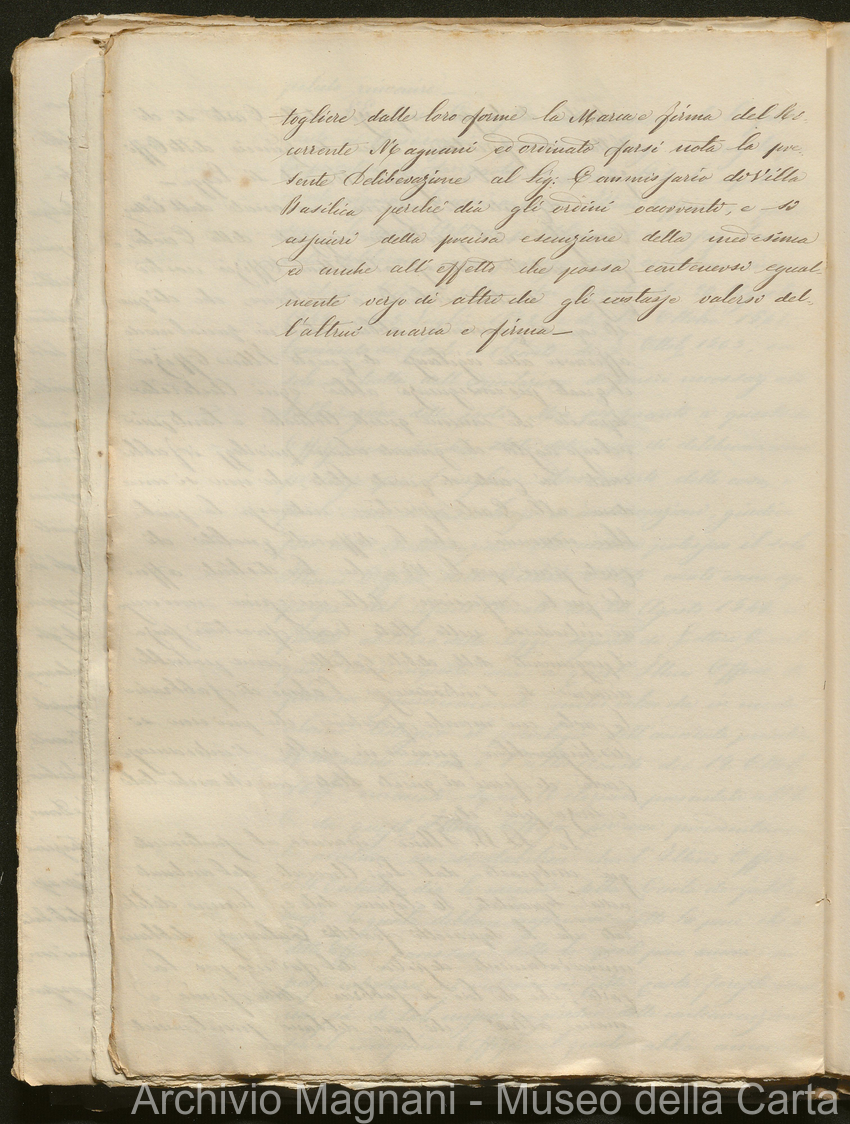 togliere dalle loro forme la Marca e firma del Ri-
corrente Magnani ed ordinato farsi nota la pre-
sente Deliberazione al Sig: Commissario di Villa
Basilica perché dia gli ordini occorrenti, e si
assicuri della precisa esecuzione della medesima
ed anche all'effetto che possa contenersi egual-
mente verso di altri che gli costasse valersi del-
l'altrui marca e firma —
Archivio Magnani - Museo della Carta